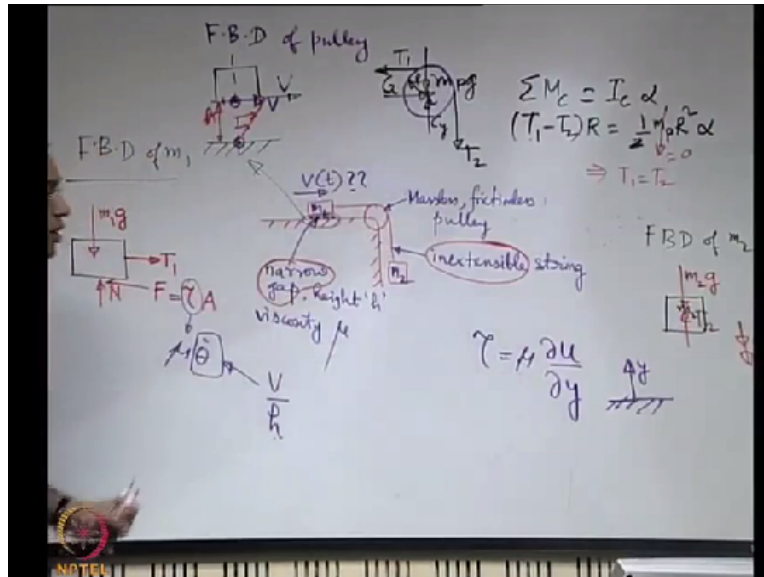 F.B.D of pulley
V
V
h
T₁
mpg
Cy
T₂
ΣMc = Ic α
(T₁-T₂)R = ½ mpR² α
=0
⇒ T₁ = T₂
F.B.D of m₁
m₁g
T₁
N
F = τA
μ θ̇
V
h
V(t)??
m₁
Massless, frictionless
pulley
inextensible string
m₂
narrow
gap, height 'h'
viscosity μ
FBD of m₂
m₂g
T₂
τ = μ ∂u
∂y
y
NPTEL